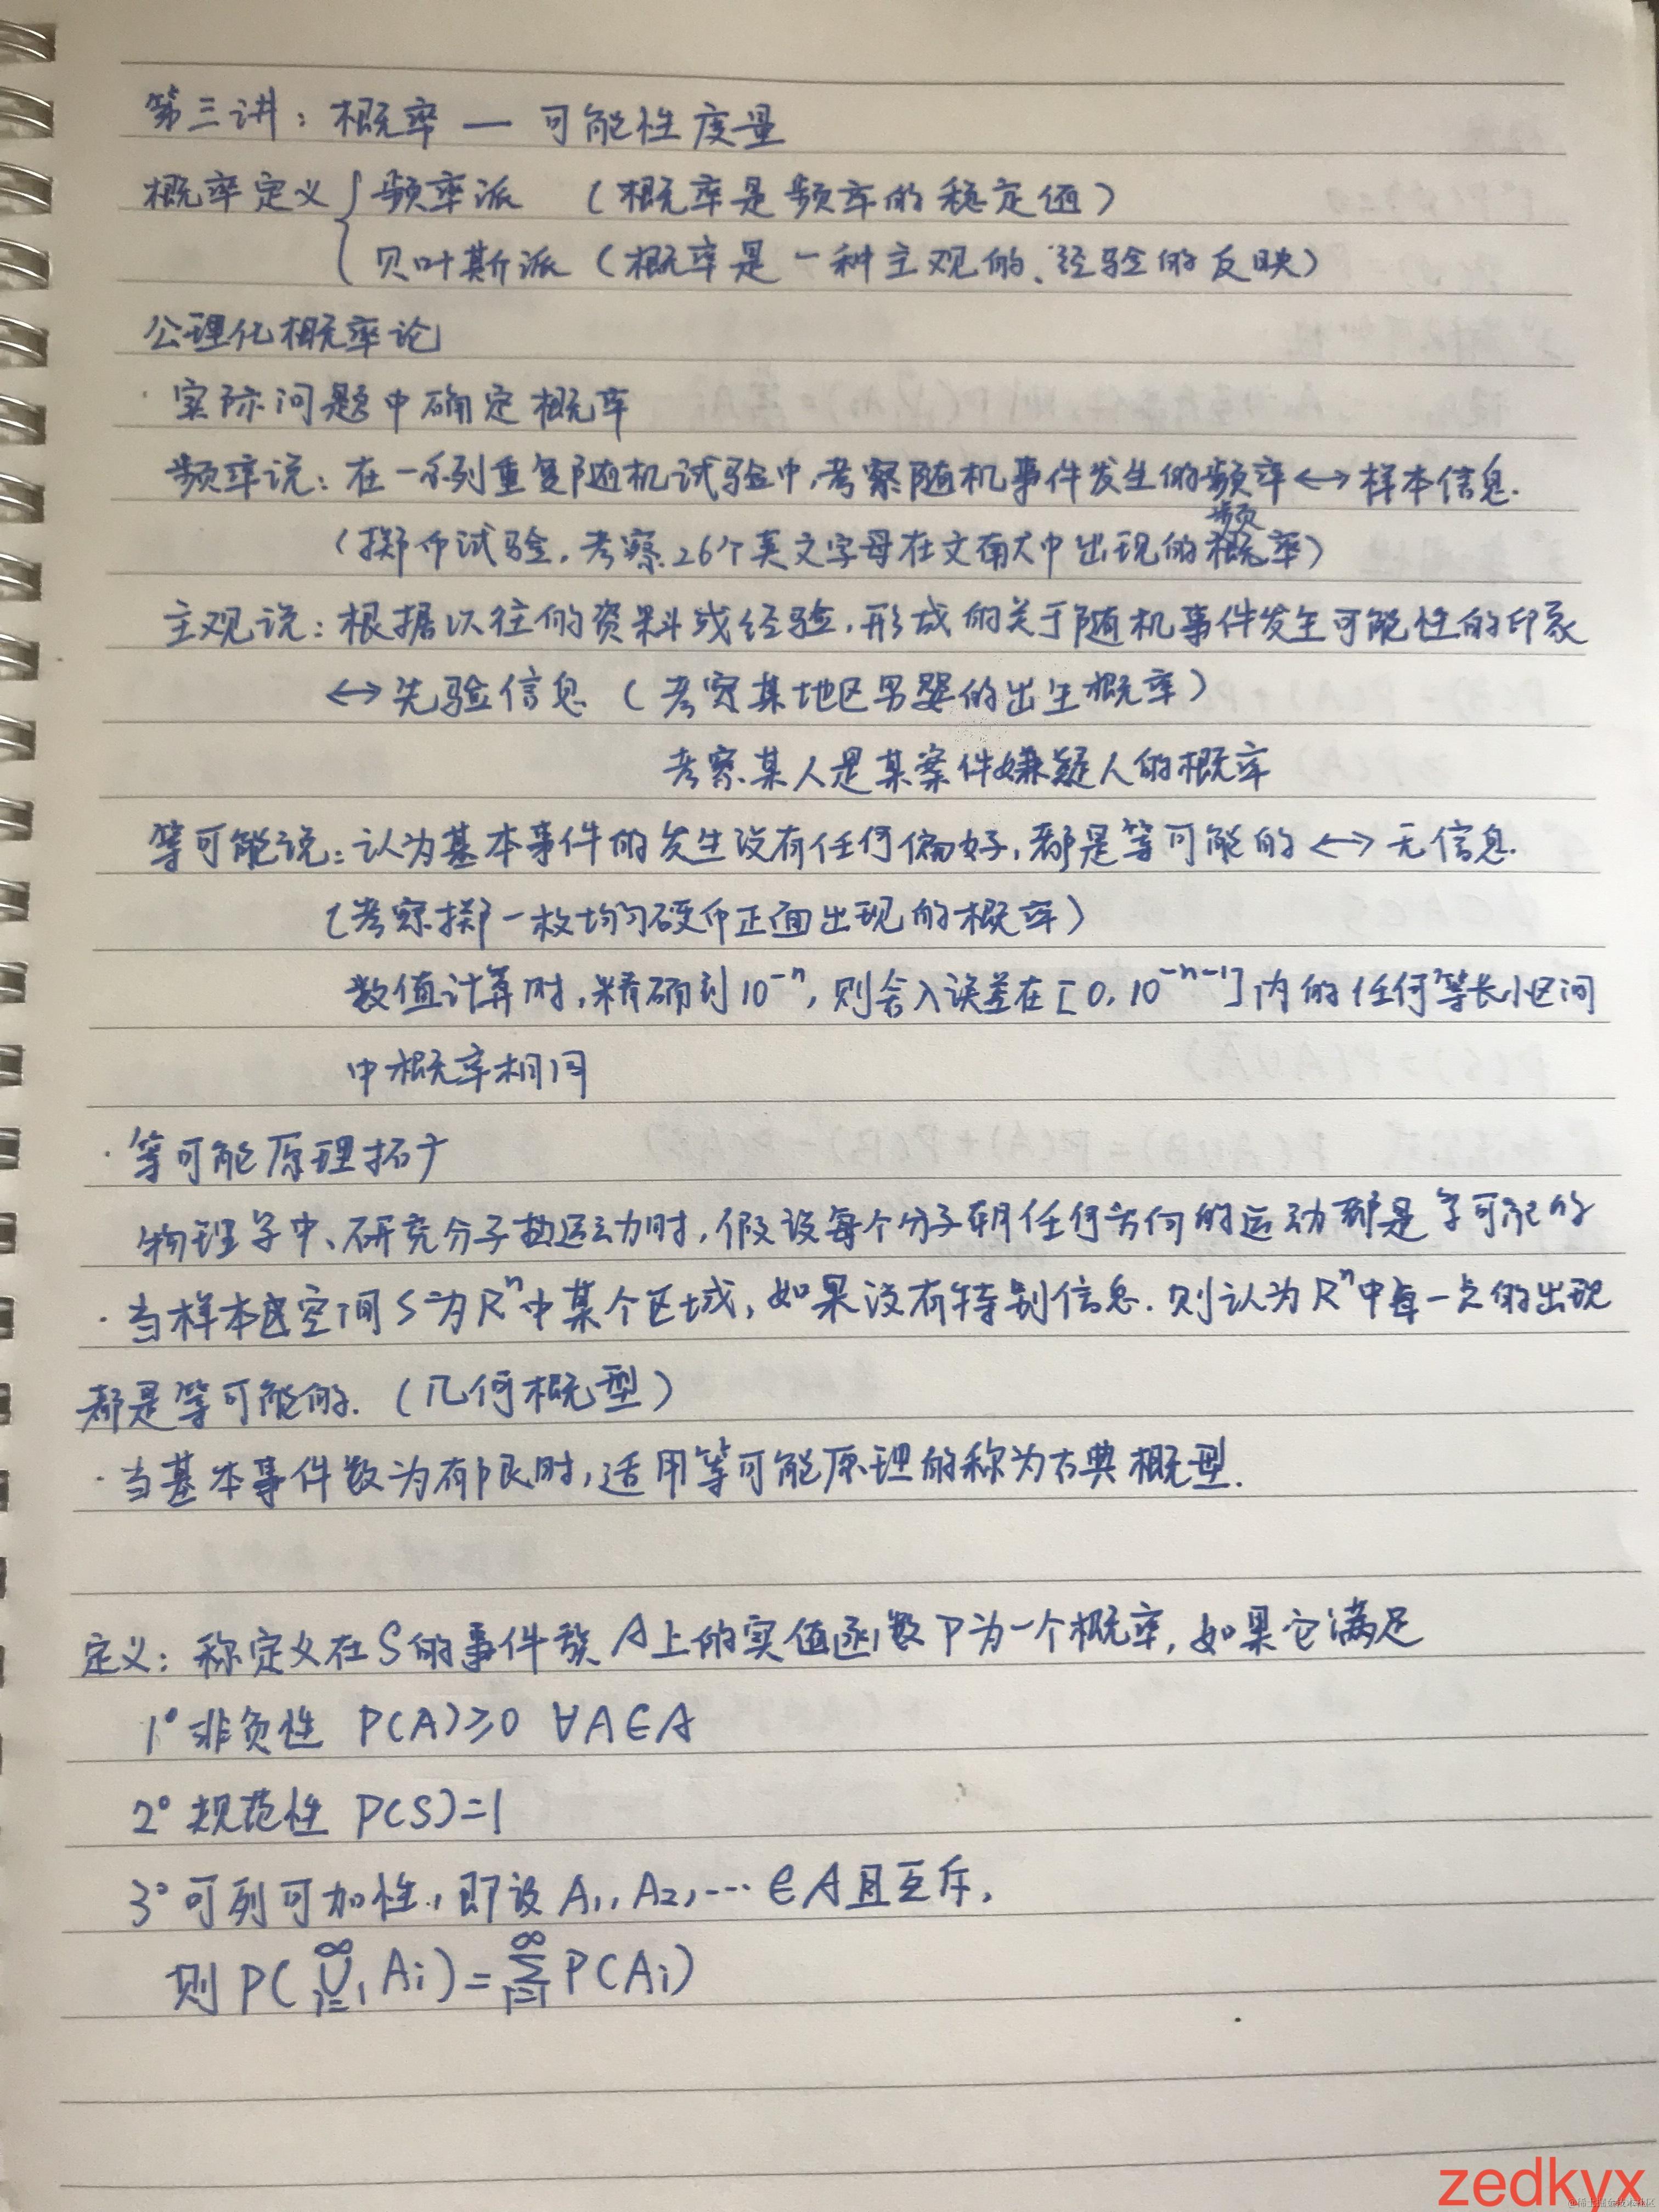 第三讲：概率 — 可能性度量
概率定义 { 频率派 （概率是频率的稳定值）
贝叶斯派（概率是一种主观的、经验的反映）
公理化概率论
· 实际问题中确定概率
频率说：在一系列重复随机试验中，考察随机事件发生的频率 ↔ 样本信息.
频
（掷币试验，考察26个英文字母在文章中出现的概率）
主观说：根据以往的资料或经验，形成的关于随机事件发生可能性的印象
↔ 先验信息（考察某地区男婴的出生概率）
考察某人是某案件嫌疑人的概率
等可能说：认为基本事件的发生没有任何偏好，都是等可能的 ↔ 无信息.
（考察掷一枚均匀硬币正面出现的概率）
数值计算时，精确到10⁻ⁿ，则舍入误差在[0, 10⁻ⁿ⁻¹]内的任何等长小区间
中概率相同
· 等可能原理拓广
物理学中、研究分子热运动时，假设每个分子朝任何方向的运动都是等可能的
· 当样本空间S为Rⁿ中某个区域，如果没有特别信息．则认为Rⁿ中每一点的出现
都是等可能的.（几何概型）
· 当基本事件数为有限时，适用等可能原理的称为古典概型.
定义：称定义在S的事件族A上的实值函数P为一个概率，如果它满足
1° 非负性 P(A)≥0 ∀A∈A
2° 规范性 P(S)=1
3° 可列可加性，即设A₁, A₂, ⋯ ∈A且互斥，
则 P(⋃_{i=1}^{∞} Ai) = ∑_{i=1}^{∞} P(Ai)
zedkyx